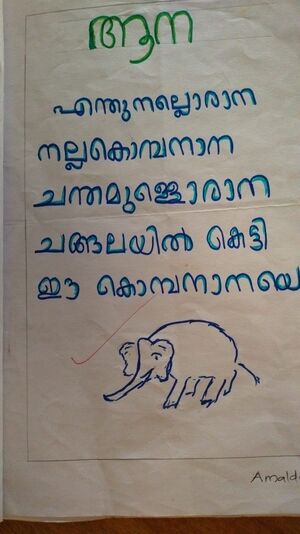 ആന
എന്തുനല്ലൊരാന
നല്ലകൊമ്പനാന
ചന്തമുള്ളൊരാന
ചങ്ങലയിൽ കെട്ടി
ഈ കൊമ്പനാനയെ